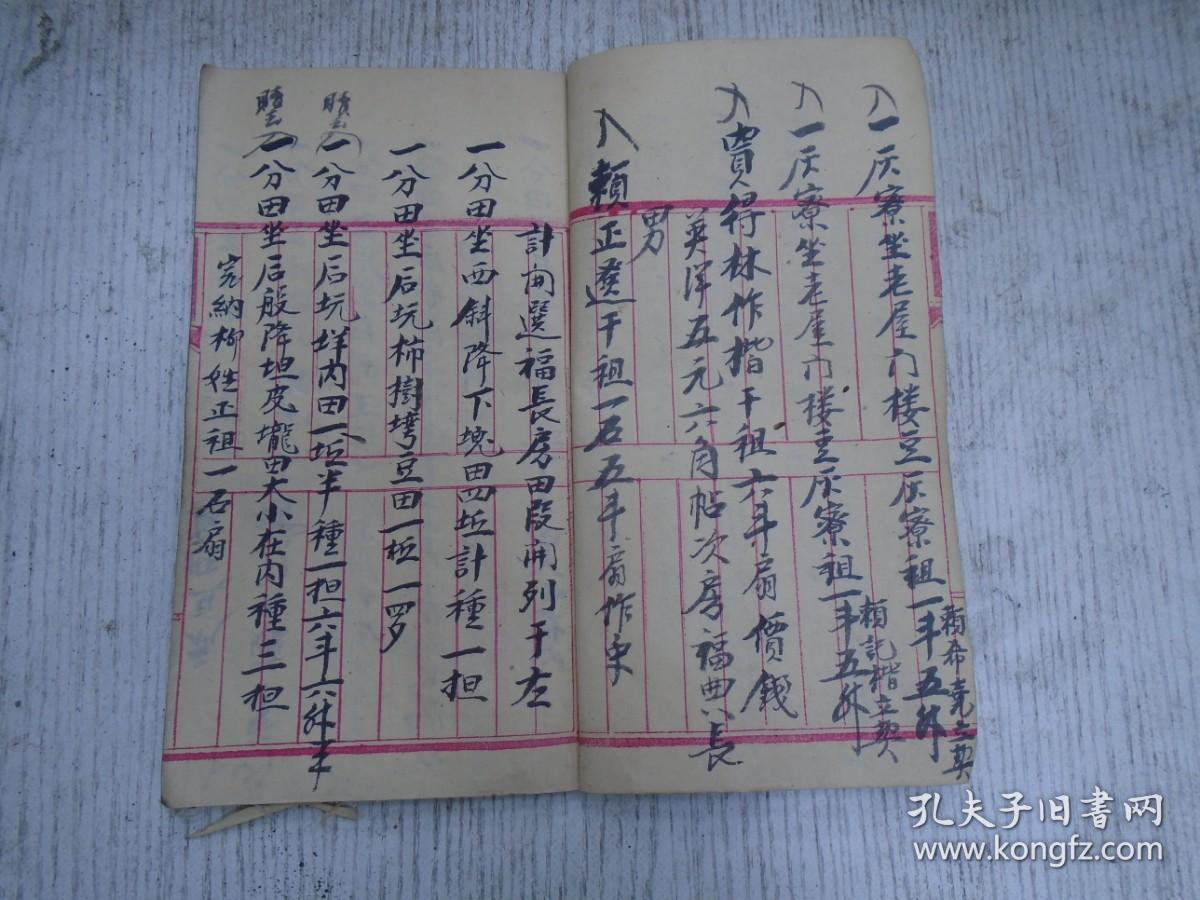 一灰寮坐老屋门楼立灰寮租一斗五升
賴希堯立契
一灰寮坐老屋门楼立灰寮租一斗五升
賴記楷立契
買得林作楷干租六斗扇價錢
英洋五元六角帖次房福典長
男
賴正選干租一石五斗扇作束
計開選福長房田段開列于左
一分田坐西斜降下塊田四坵計種一担
一分田坐后坑柿樹塆豆田一坵一罗
一分田坐后坑垟内田一坵半種一担六斗六升半
一分田坐后般降坦皮壠田大小在内種三担
完納柳姓正租一石扇
孔夫子旧书网
www.kongfz.com